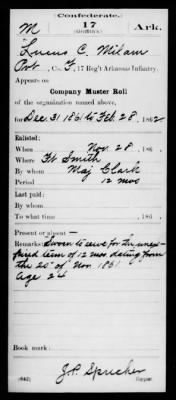 Confederate.
M 17 Ark.
(Griffith's)
Lucius C. Milam
Pvt., Co. F, 17 Reg't Arkansas Infantry.
Appears on
Company Muster Roll
of the organization named above,
for Dec. 31 1861 to Feb. 28, 1862
Enlisted:
When Nov. 28, 186 .
Where Ft Smith
By whom Maj Clark
Period 12 mos
Last paid:
By whom
To what time , 186 .
Present or absent —
Remarks: Sworn to serve for the unex-
pired term of 12 mos. dating from
the 20th of Nov. 1861
Age 24
Book mark:
J. P. Sprecher
(642) Copyist.